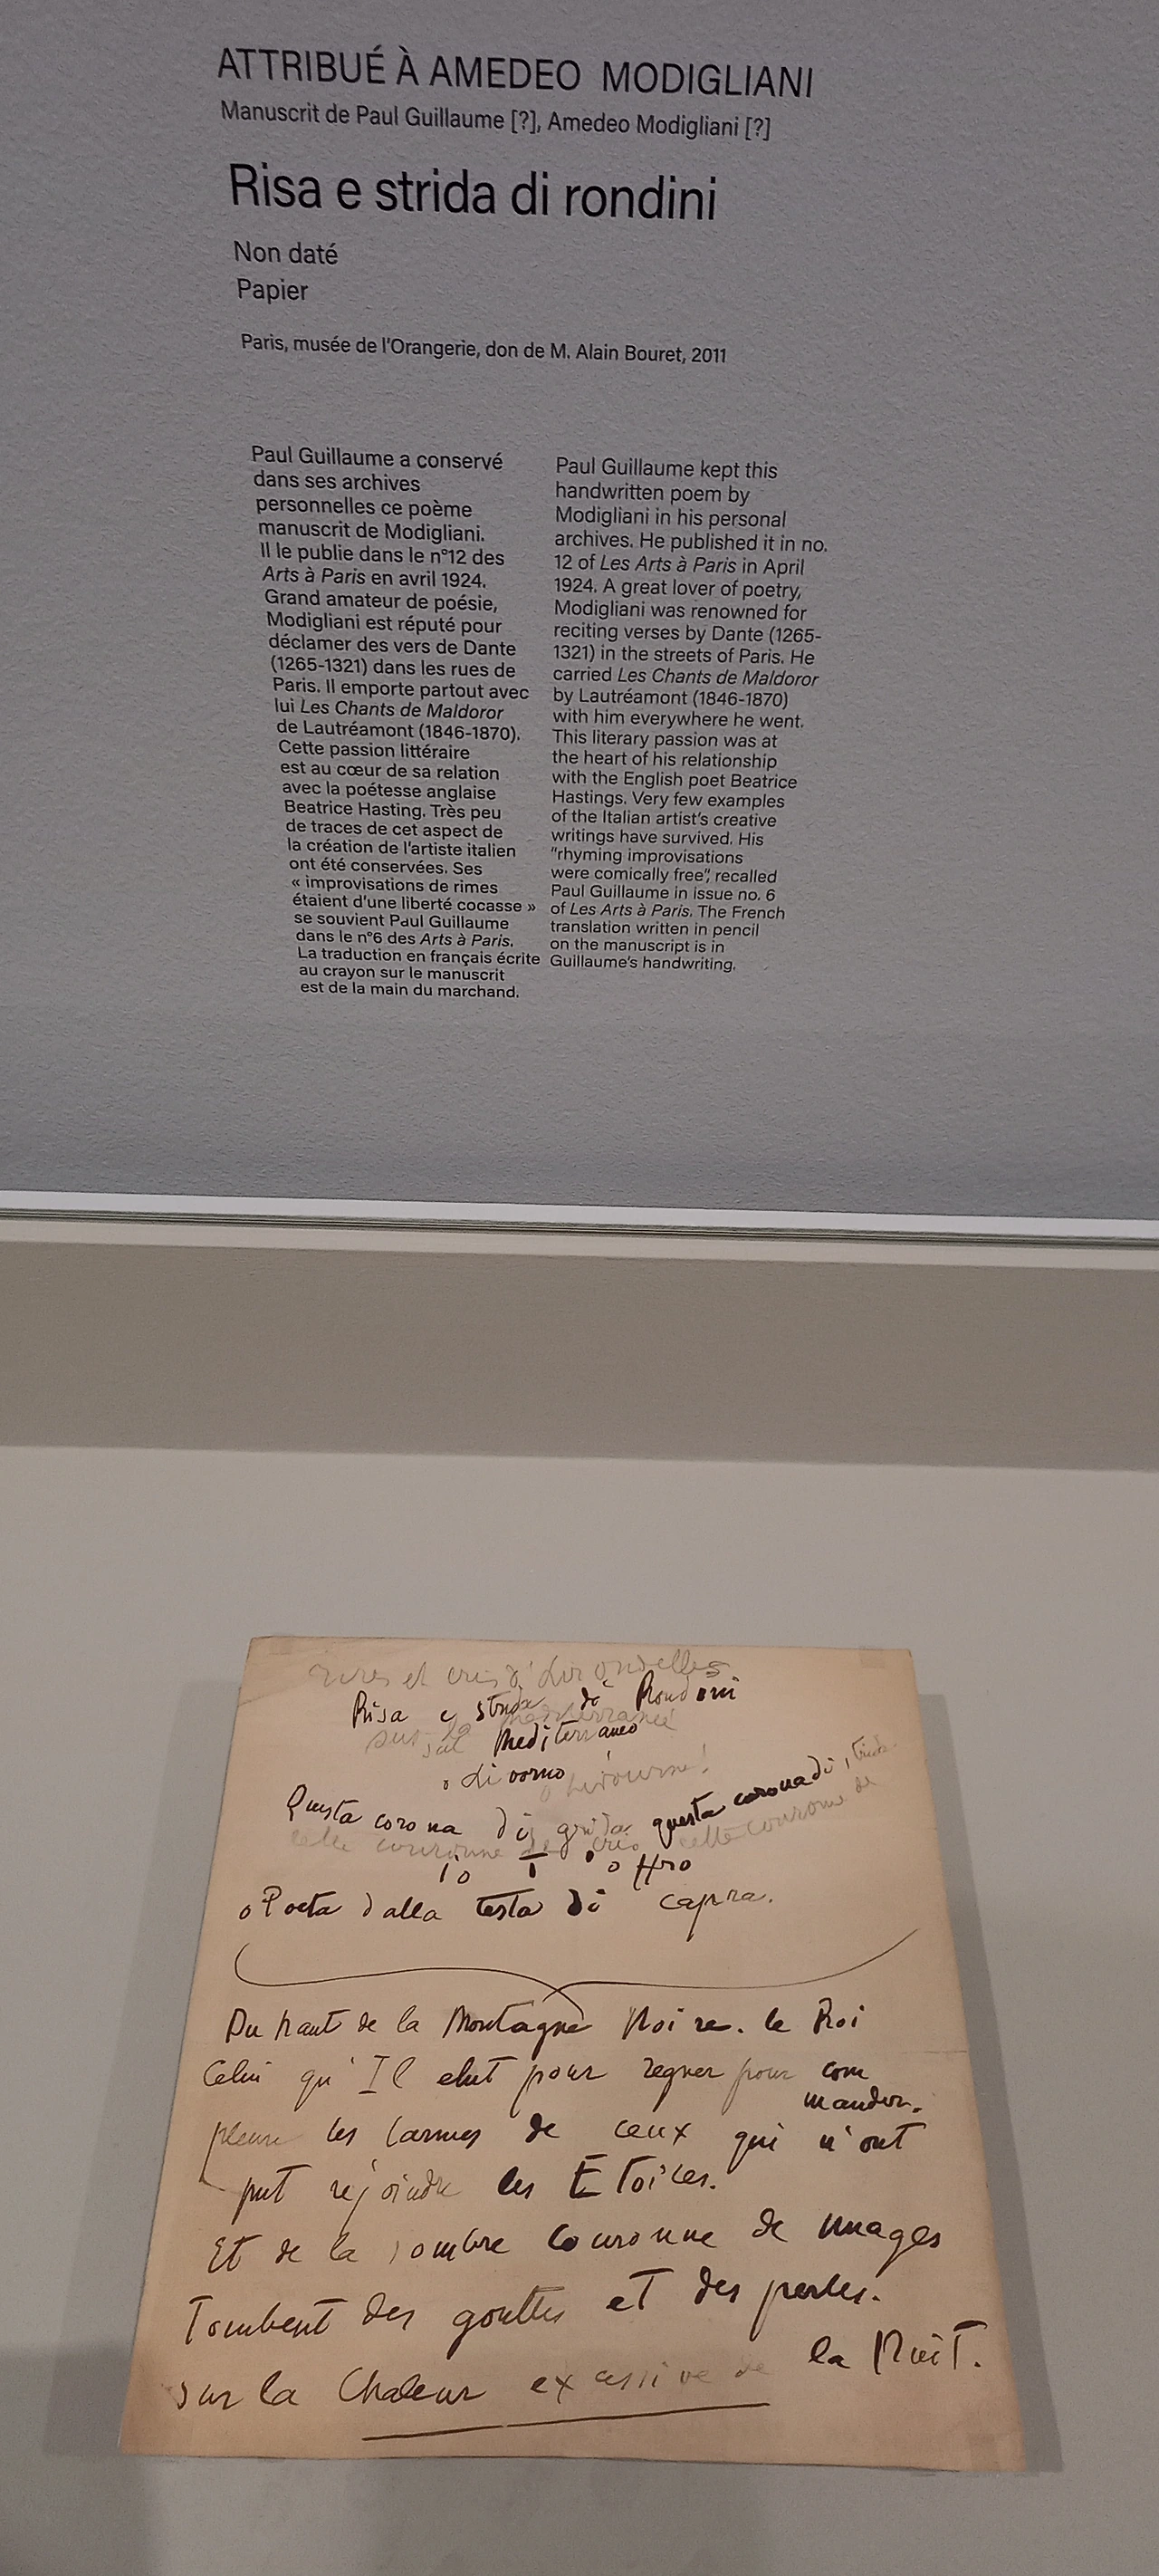 ATTRIBUÉ À AMEDEO MODIGLIANI
Manuscrit de Paul Guillaume [?], Amedeo Modigliani [?]
Risa e strida di rondini
Non daté
Papier
Paris, musée de l'Orangerie, don de M. Alain Bouret, 2011
Paul Guillaume a conservé
dans ses archives
personnelles ce poème
manuscrit de Modigliani.
Il le publie dans le n°12 des
Arts à Paris en avril 1924.
Grand amateur de poésie,
Modigliani est réputé pour
déclamer des vers de Dante
(1265-1321) dans les rues de
Paris. Il emporte partout avec
lui Les Chants de Maldoror
de Lautréamont (1846-1870).
Cette passion littéraire
est au cœur de sa relation
avec la poétesse anglaise
Beatrice Hasting. Très peu
de traces de cet aspect de
la création de l'artiste italien
ont été conservées. Ses
« improvisations de rimes
étaient d'une liberté cocasse »
se souvient Paul Guillaume
dans le n°6 des Arts à Paris.
La traduction en français écrite
au crayon sur le manuscrit
est de la main du marchand.
Paul Guillaume kept this
handwritten poem by
Modigliani in his personal
archives. He published it in no.
12 of Les Arts à Paris in April
1924. A great lover of poetry,
Modigliani was renowned for
reciting verses by Dante (1265-
1321) in the streets of Paris. He
carried Les Chants de Maldoror
by Lautréamont (1846-1870)
with him everywhere he went.
This literary passion was at
the heart of his relationship
with the English poet Beatrice
Hastings. Very few examples
of the Italian artist's creative
writings have survived. His
"rhyming improvisations
were comically free", recalled
Paul Guillaume in issue no. 6
of Les Arts à Paris. The French
translation written in pencil
on the manuscript is in
Guillaume's handwriting.
rires et cris d'hirondelles
Risa e strida di Rondini
sur la méditerranée
sul Mediterraneo
o Livorno
o Livourne!
Questa corona di grida questa corona di
cette couronne de cris cette couronne de
io T'offro
o Poeta dalla testa di capra.
Du haut de la Montagne Noire. le Roi
Celui qu'Il elut pour regner pour com
mander.
pleure les larmes de ceux qui n'ont
put rejoindre les Etoiles.
Et de la sombre Couronne de nuages
Tombent des gouttes et des perles.
sur la Chaleur excessive de la Nuit.